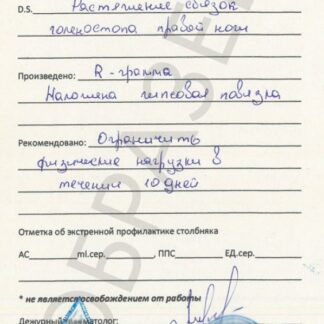 D.S. Растяжение связок
голеностопа правой ноги
Произведено: R-грамма
Наложена гипсовая повязка
Рекомендовано: Ограничить
физические нагрузки в
течении 10 дней
Отметка об экстренной профилактике столбняка
АС______ml.сер.______, ППС______ЕД.сер.______
* не является освобождением от работы
Дежурный травматолог:
ОБРАЗЕЦ